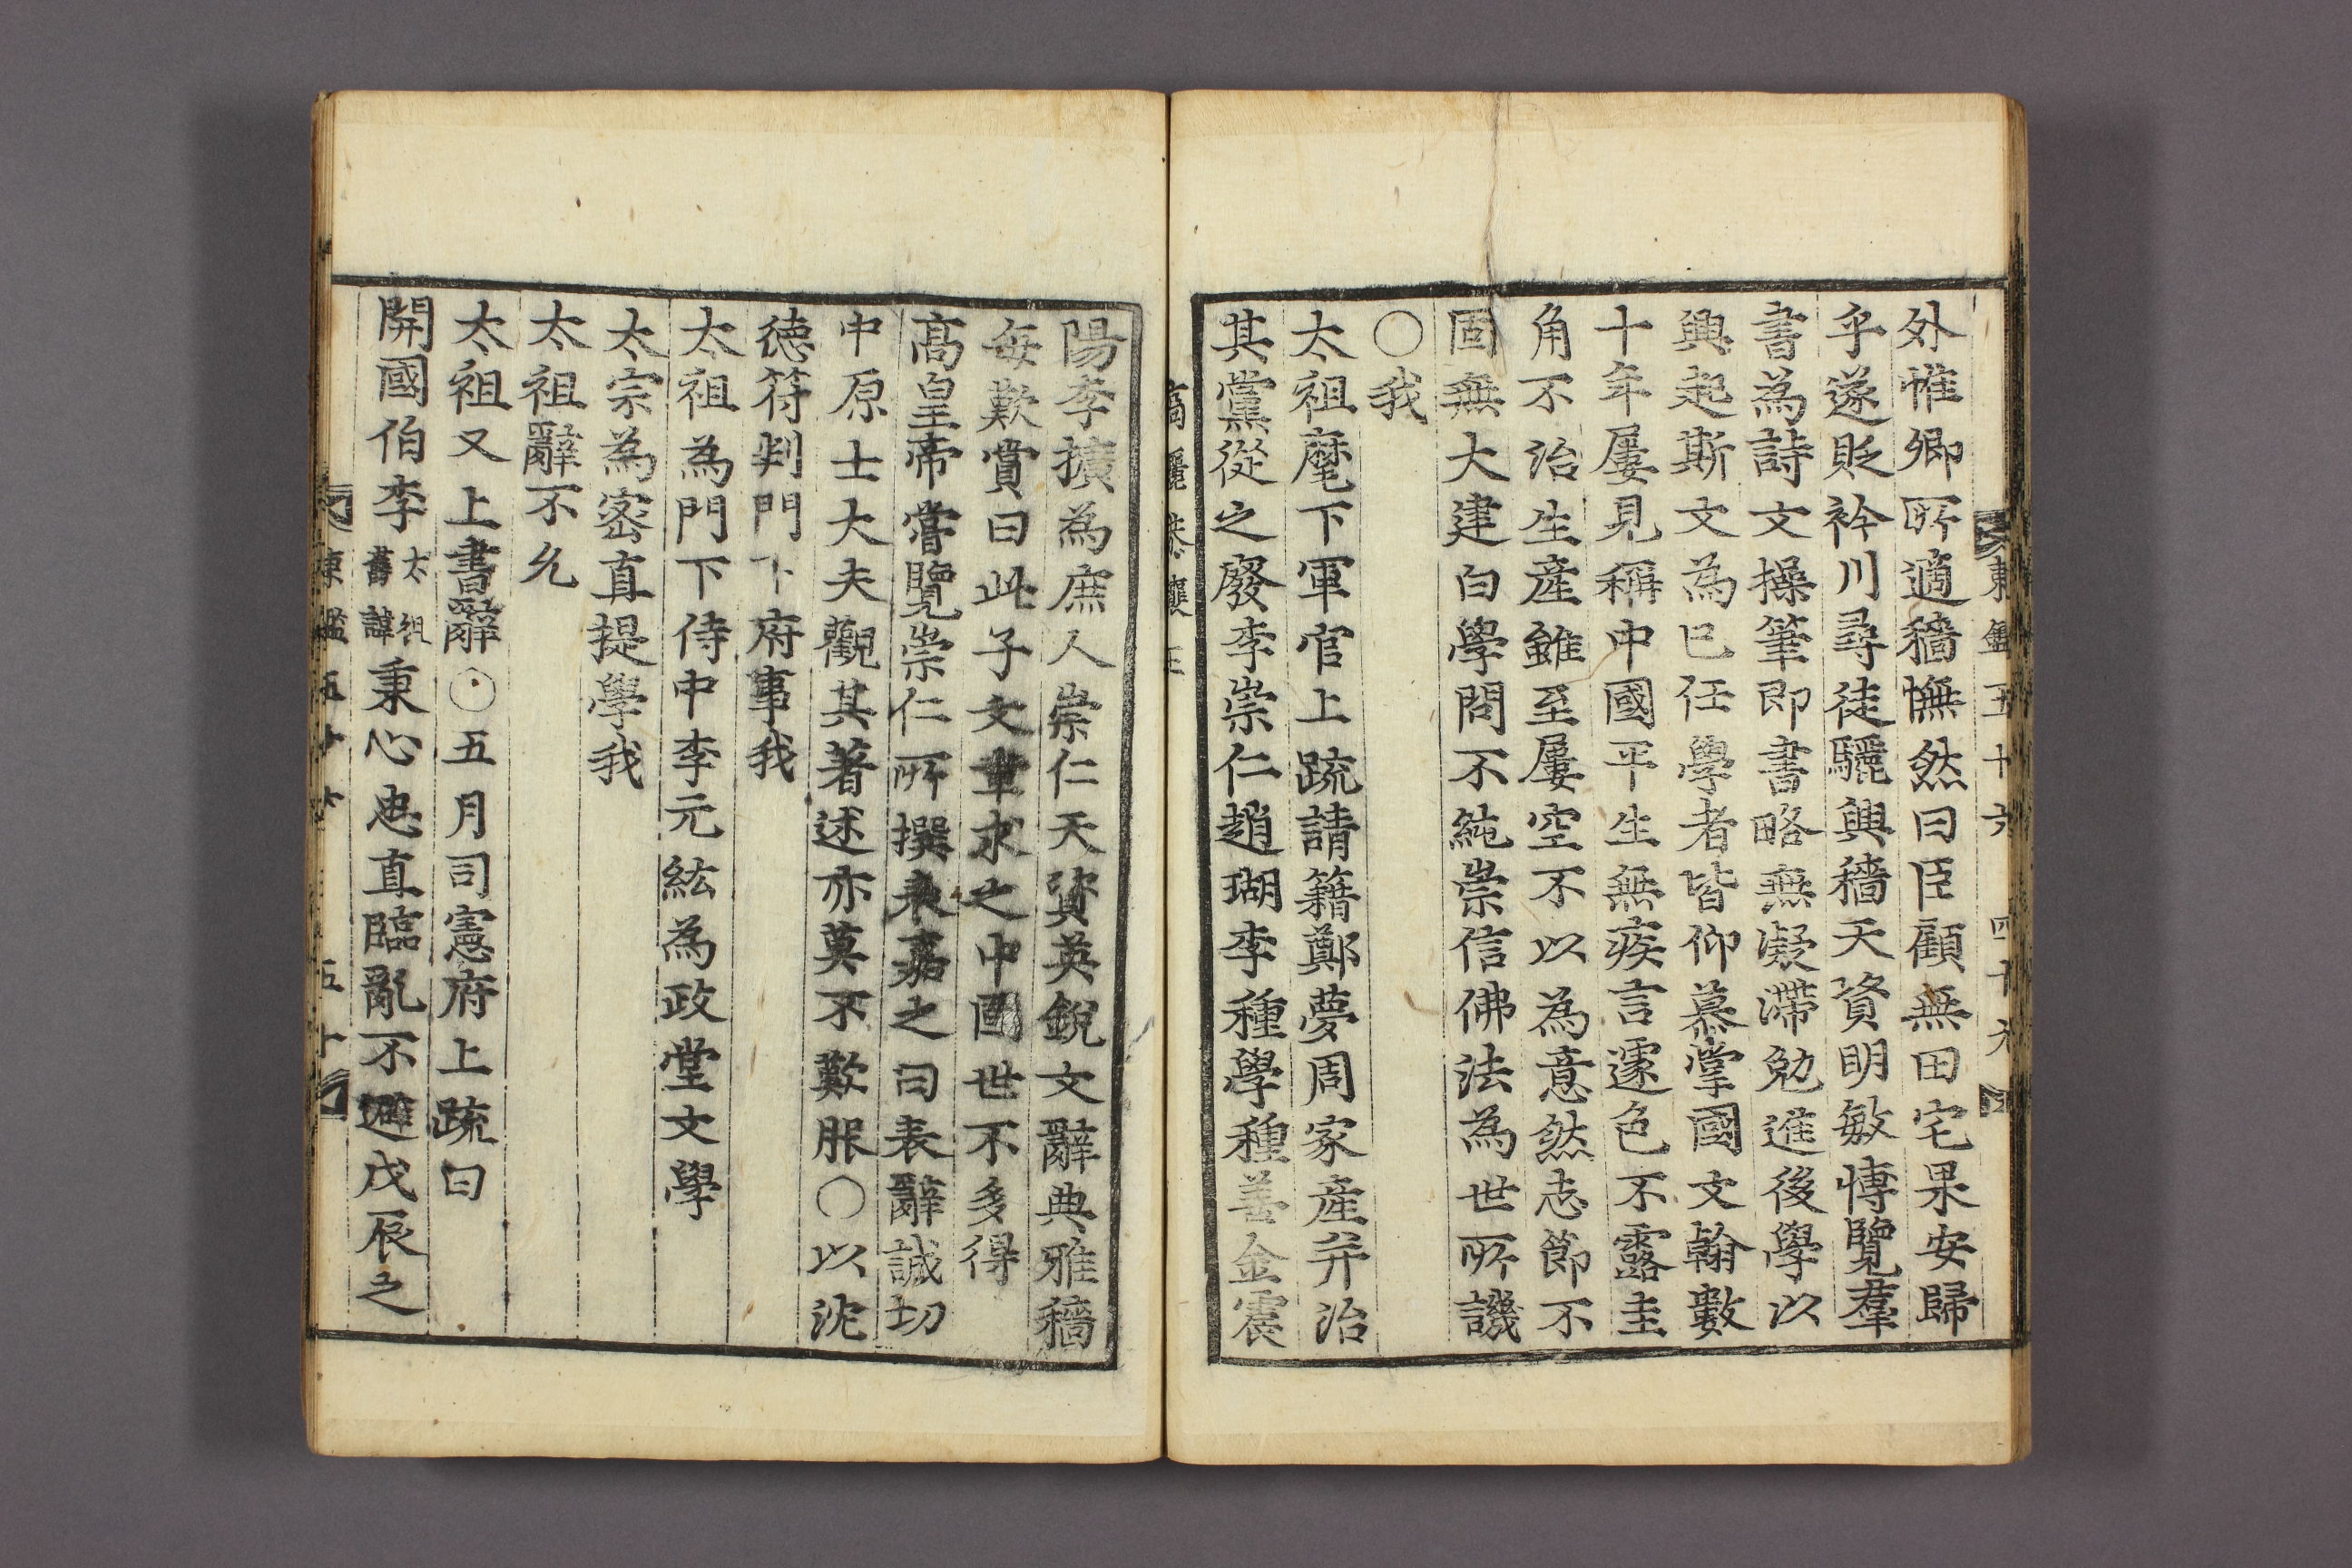 東鑑五十六 四十九
外惟卿所適穡憮然曰臣顧無田宅果安歸
乎遂貶衿川尋徒驪興穡天資明敏博覽羣
書為詩文操筆即書略無凝滯勉進後學以
興起斯文為已任學者皆仰慕掌國文翰數
十年屢見稱中國平生無疾言遽色不露圭
角不治生産雖至屢空不以為意然志節不
固無大建白學問不純崇信佛法為世所譏
○我
太祖麾下軍官上疏請籍鄭夢周家産并治
其黨從之廢李崇仁趙瑚李種學種善金震
高麗恭讓王
陽李擴為庶人崇仁天資英銳文辭典雅穡
每歎賞曰此子文章求之中國世不多得
高皇帝嘗覽崇仁所撰表嘉之曰表辭誠切
中原士大夫觀其著述亦莫不歎服○以沈
德符判門下府事我
太祖為門下侍中李元紘為政堂文學
太宗為密直提學我
太祖辭不允
太祖又上書辭○五月司憲府上疏曰
開國伯李太祖舊諱秉心忠直臨亂不避戊辰之
東鑑五十六 五十